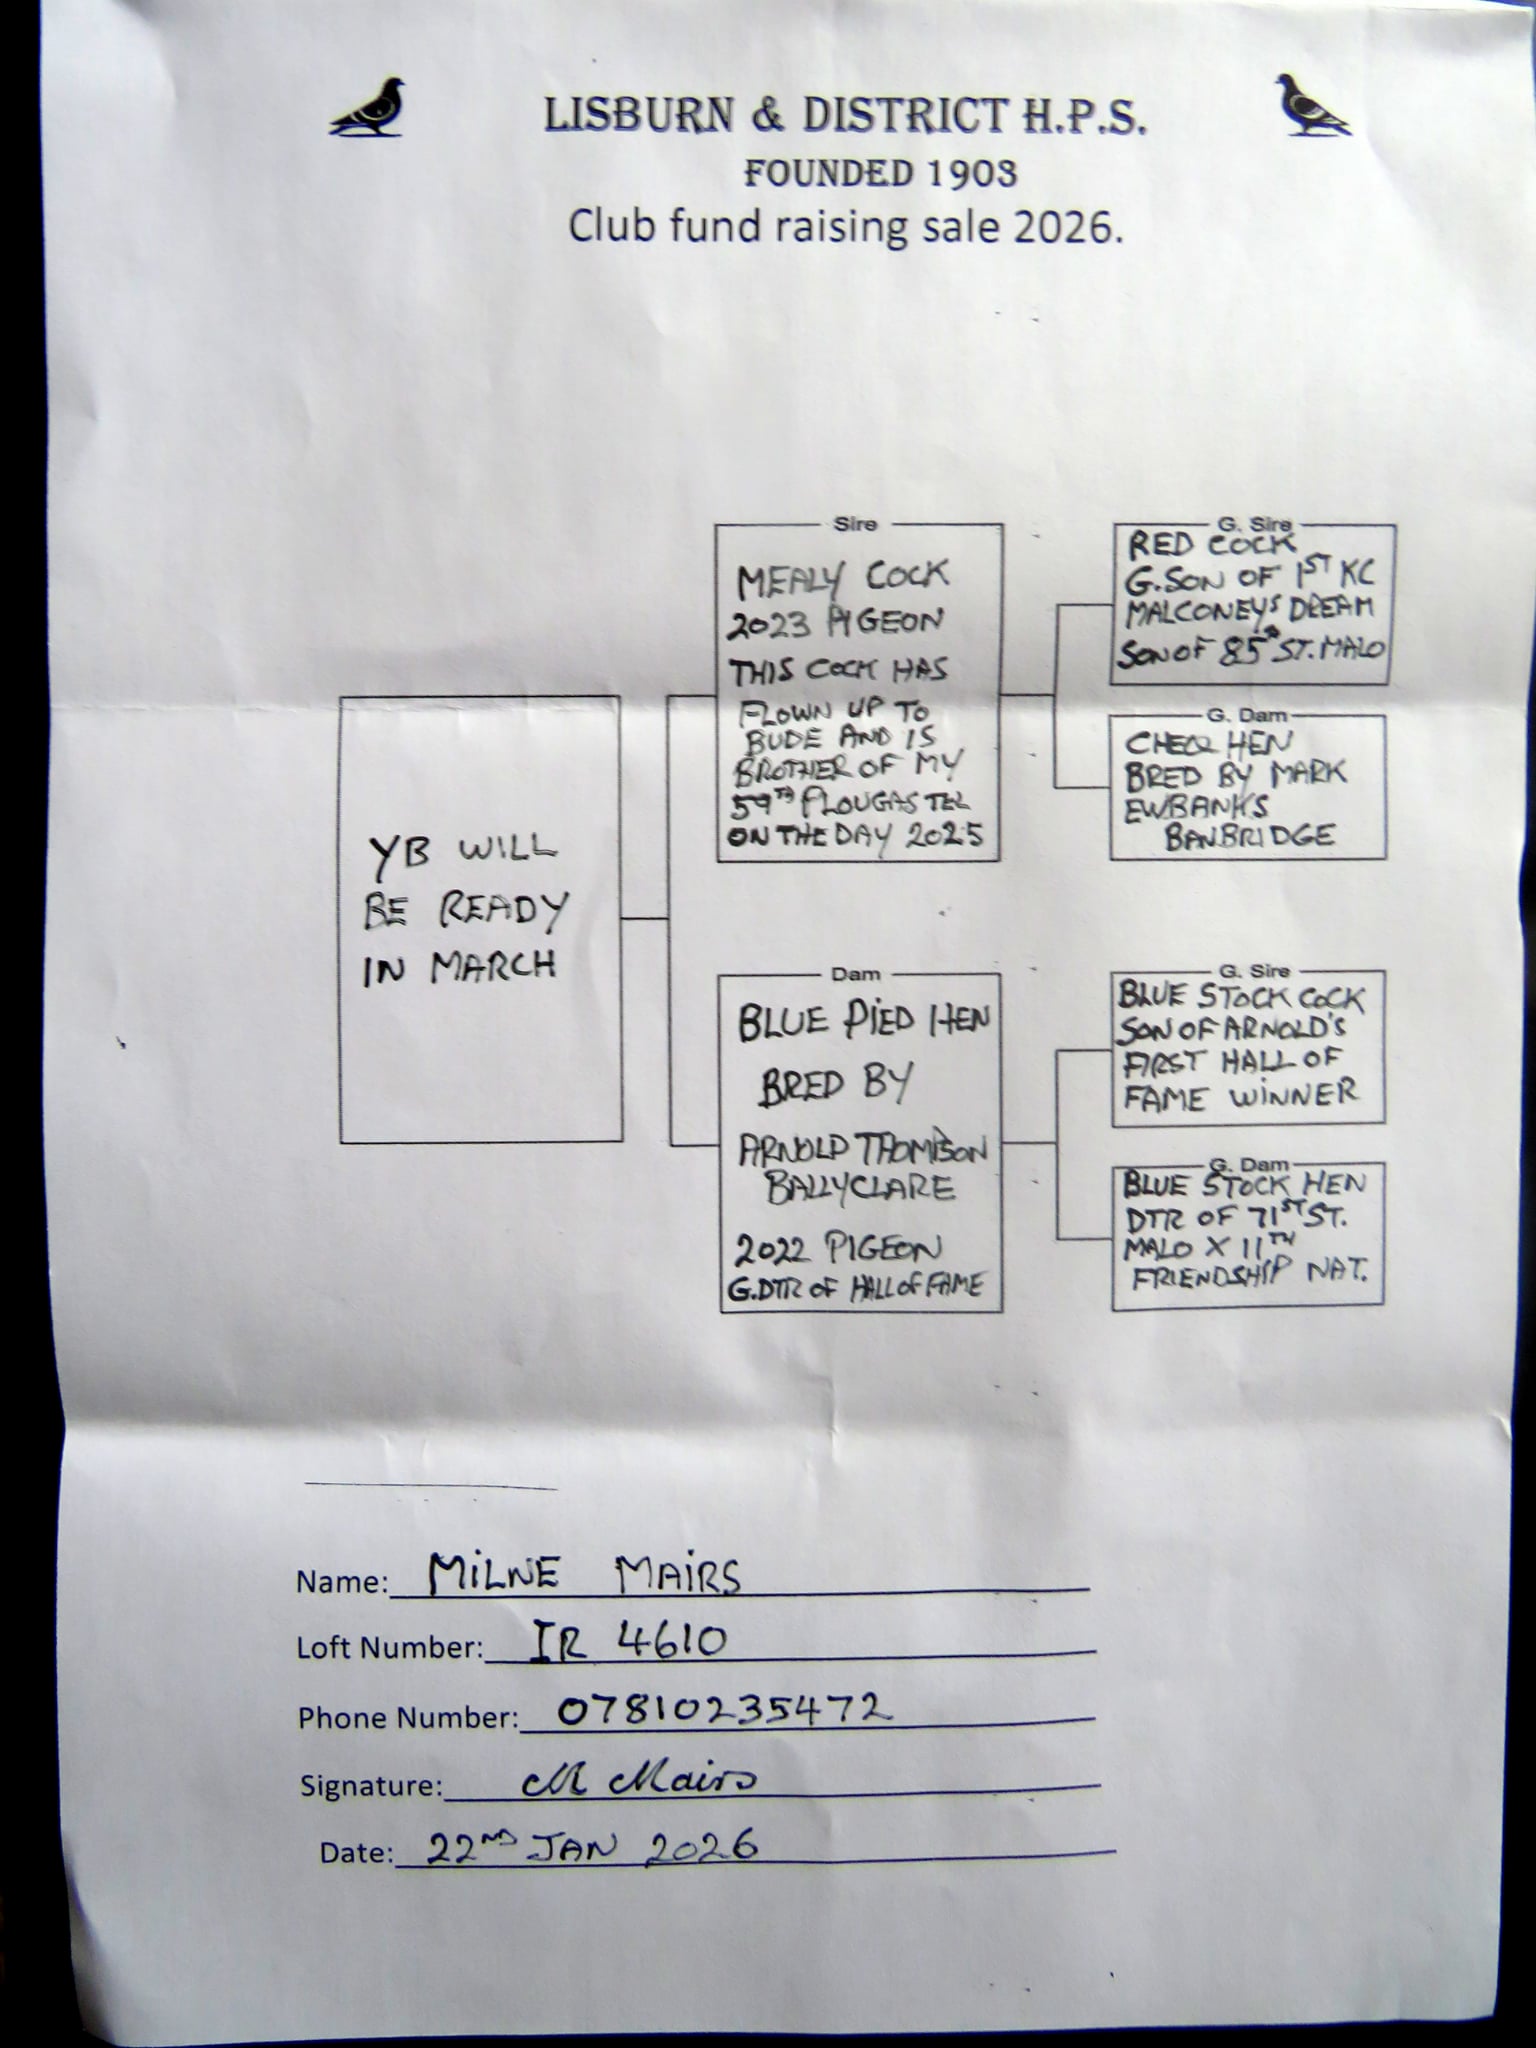 LISBURN & DISTRICT H.P.S.
FOUNDED 1903
Club fund raising sale 2026.
YB WILL
BE READY
IN MARCH
Sire
MEALY COCK
2023 PIGEON
THIS COCK HAS
FLOWN UP TO
BUDE AND IS
BROTHER OF MY
59TH PLOUGASTEL
ON THE DAY 2025
Dam
BLUE PIED HEN
BRED BY
ARNOLD THOMPSON
BALLYCLARE
2022 PIGEON
G.DTR OF HALL OF FAME
G. Sire
RED COCK
G.SON OF 1ST KC
MALCONEYS DREAM
SON OF 85TH ST. MALO
G. Dam
CHEQ HEN
BRED BY MARK
EWBANKS
BANBRIDGE
G. Sire
BLUE STOCK COCK
SON OF ARNOLD'S
FIRST HALL OF
FAME WINNER
G. Dam
BLUE STOCK HEN
DTR OF 71ST ST.
MALO X 11TH
FRIENDSHIP NAT.
Name: MILNE MAIRS
Loft Number: IR 4610
Phone Number: 07810235472
Signature: M Mairs
Date: 22ND JAN 2026